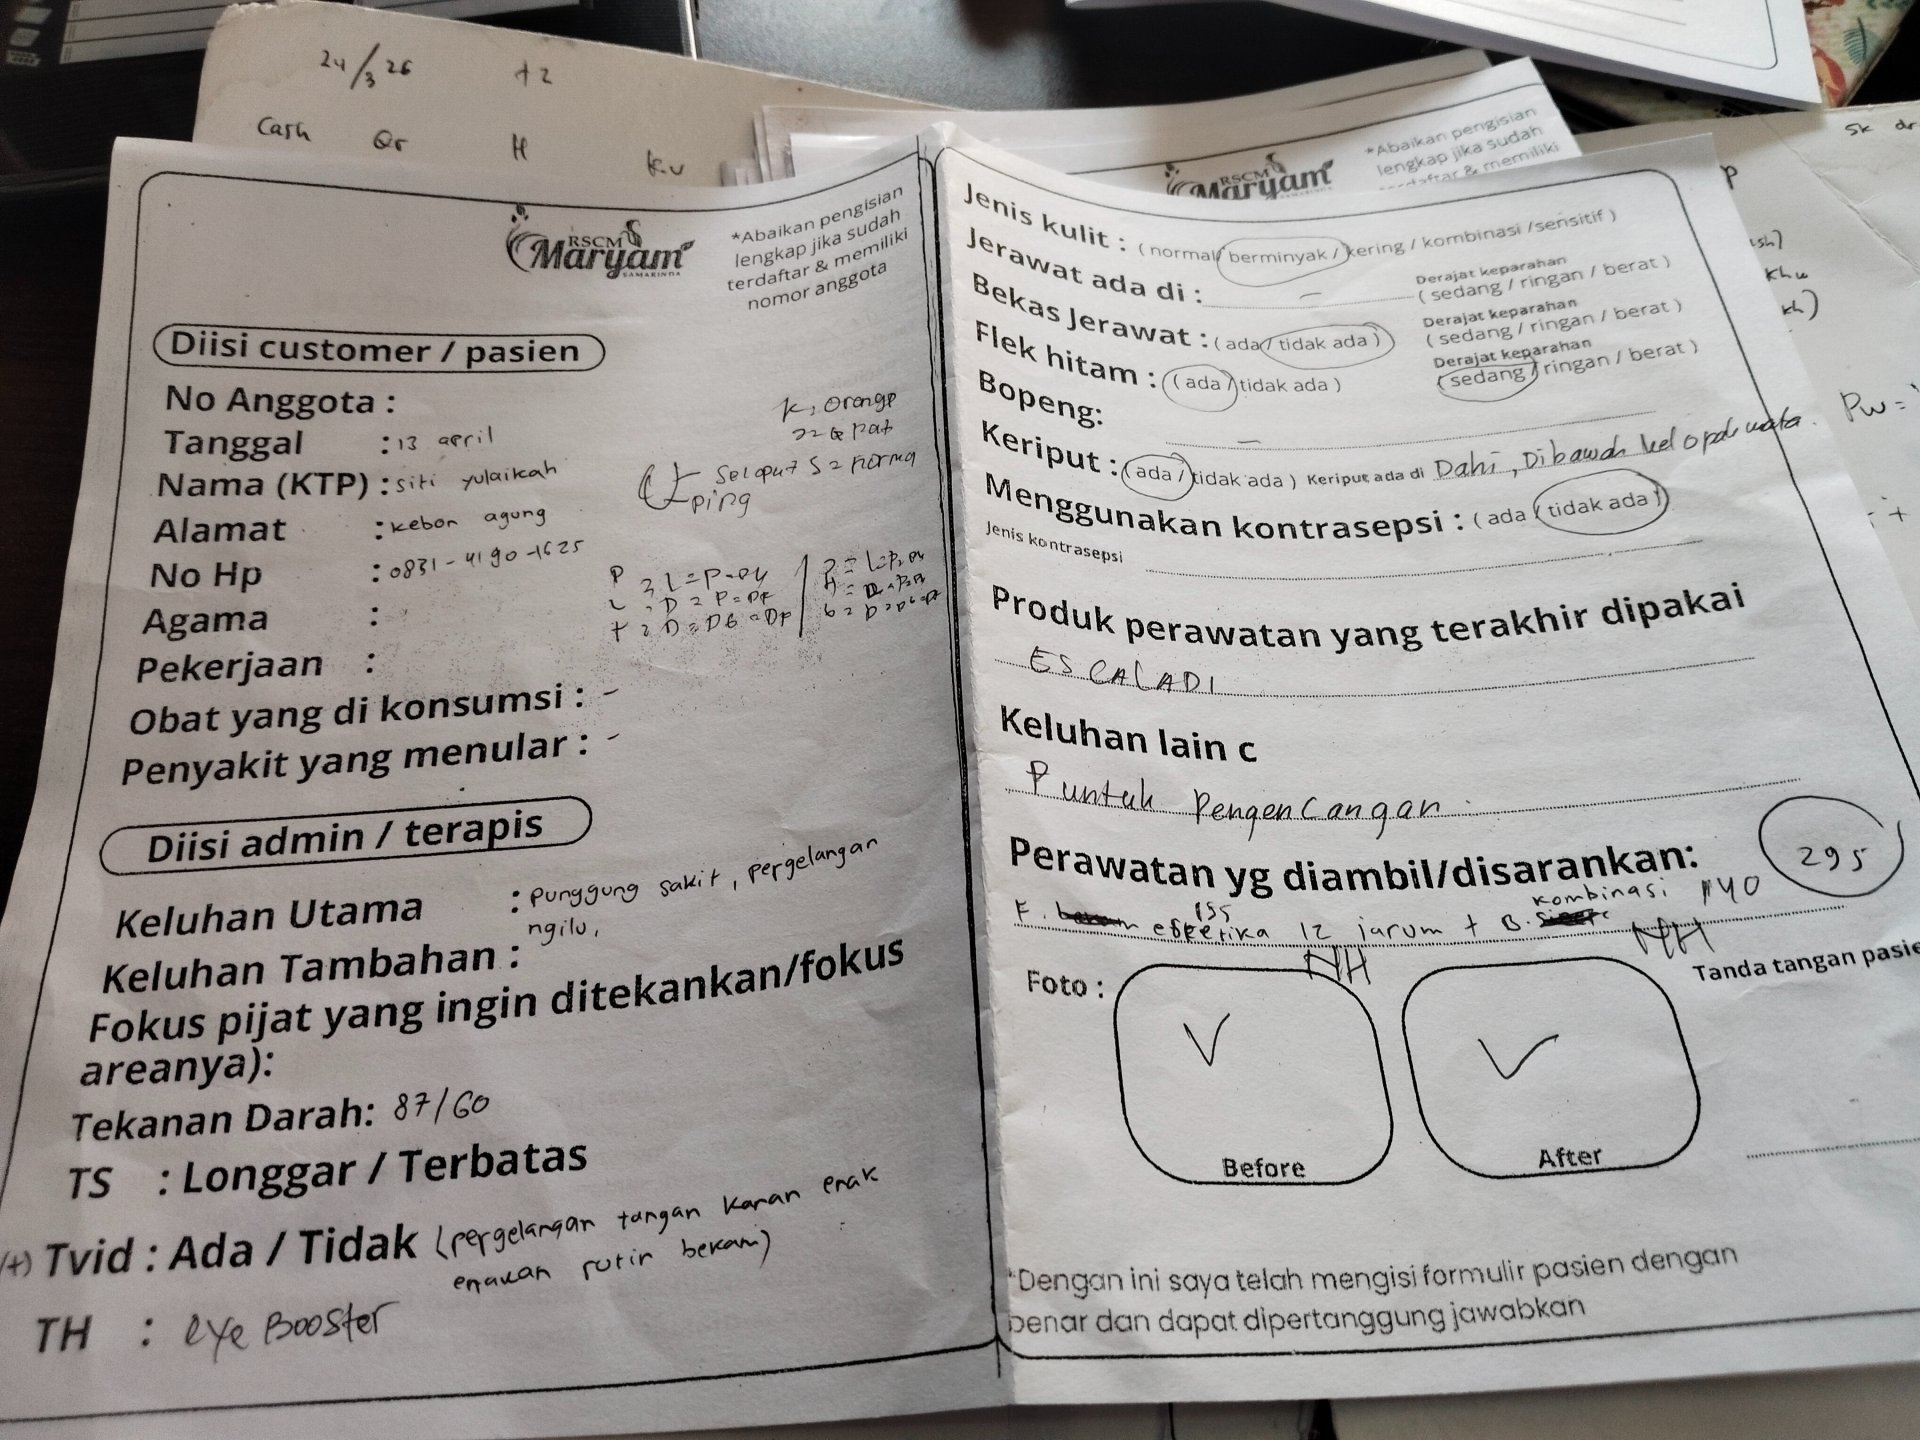 24/3 26 +2
Cash Qr H K.u
RSCM
Maryam
SAMARINDA
*Abaikan pengisian
lengkap jika sudah
terdaftar & memiliki
nomor anggota
Diisi customer / pasien
No Anggota :
Tanggal : 13 april
Nama (KTP) : siti yulaikah
Alamat : kebon agung
No Hp : 0831-4190-1625
Agama :
Pekerjaan :
Obat yang di konsumsi : -
Penyakit yang menular : -
Diisi admin / terapis
Keluhan Utama : punggung sakit, pergelangan
ngilu,
Keluhan Tambahan :
Fokus pijat yang ingin ditekankan/fokus
areanya):
Tekanan Darah: 87/60
TS : Longgar / Terbatas
(+) Tvid : Ada / Tidak (pergelangan tangan kanan enak
enakan rutin bekam)
TH : eye Booster
RSCM
Maryam
*Abaikan pengisian
lengkap jika sudah
terdaftar & memiliki
Jenis kulit : (normal/ berminyak / kering / kombinasi /sensitif )
Jerawat ada di : - Derajat keparahan
( sedang / ringan / berat )
Bekas Jerawat : ( ada / tidak ada ) Derajat keparahan
( sedang / ringan / berat )
Flek hitam : ( ada / tidak ada ) Derajat keparahan
( sedang / ringan / berat )
Bopeng: -
Keriput : ( ada / tidak ada ) Keriput ada di Dahi, Dibawah kelopak mata.
Menggunakan kontrasepsi : ( ada / tidak ada )
Jenis kontrasepsi
Produk perawatan yang terakhir dipakai
ESCALADI
Keluhan lain c
P untuk Pengencangan.
Perawatan yg diambil/disarankan: 295
155 kombinasi 140
F. estetika 12 jarum + B.
NH NH
Foto :
Before
After
Tanda tangan pasie
*Dengan ini saya telah mengisi formulir pasien dengan
benar dan dapat dipertanggung jawabkan